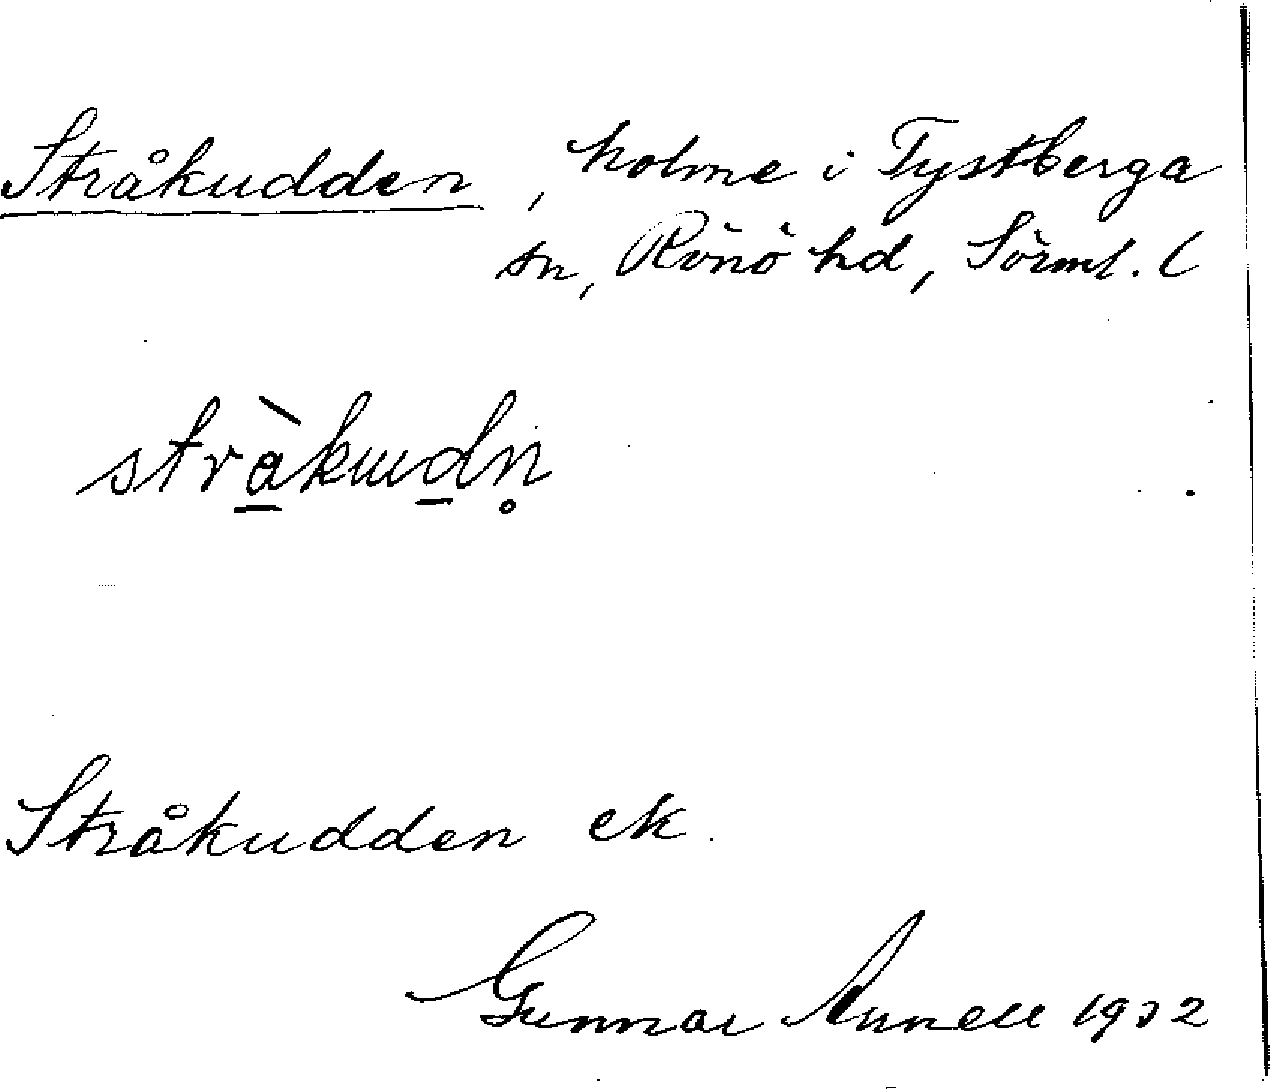 Stråkudden, holme i Tystberga
sn, Rönö hd, Sörml. l
stràkudn̥
Stråkudden ek.
Gunnar Annell 1932